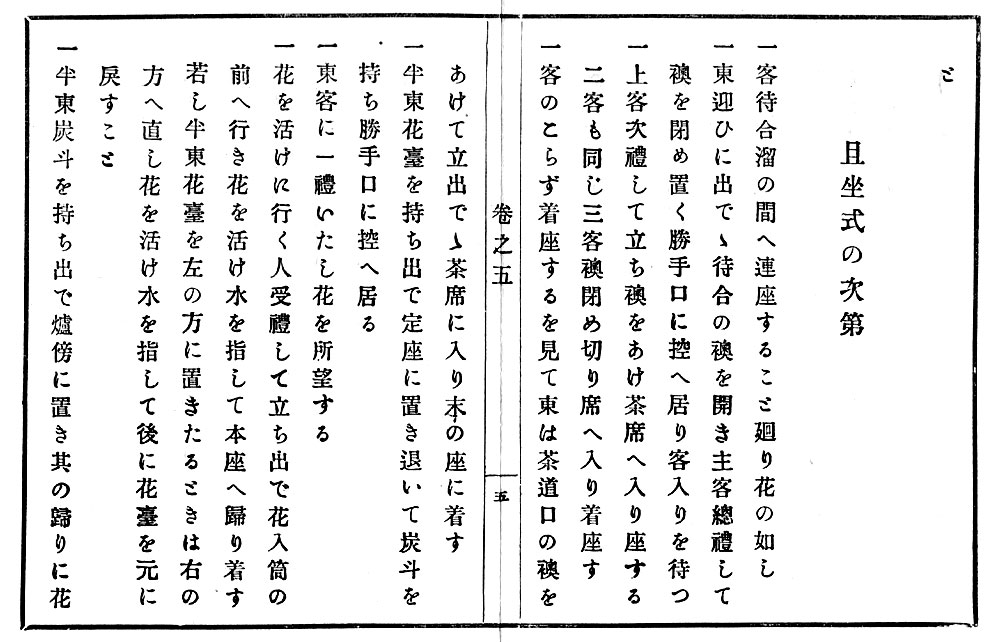 と
且坐式の次第
一客待合溜の間へ連座すること廻り花の如し
一東迎ひに出でゝ待合の襖を開き主客總禮して
襖を閉め置く勝手口に控へ居り客入りを待つ
一上客次禮して立ち襖をあけ茶席へ入り座する
二客も同じ三客襖閉め切り席へ入り着座す
一客のこらず着座するを見て東は茶道口の襖を
卷之五
五
あけて立出でゝ茶席に入り末の座に着す
一半東花臺を持ち出で定座に置き退いて炭斗を
持ち勝手口に控へ居る
一東客に一禮いたし花を所望する
一花を活けに行く人受禮して立ち出で花入筒の
前へ行き花を活け水を指して本座へ歸り着す
若し半東花臺を左の方に置きたるときは右の
方へ直し花を活け水を指して後に花臺を元に
戻すこと
一半東炭斗を持ち出で爐傍に置き其の歸りに花